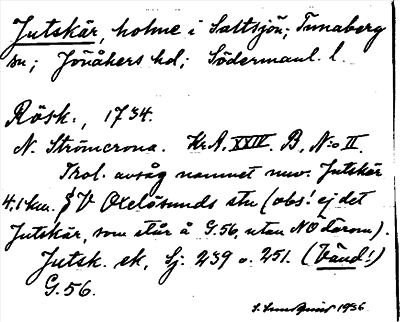 Jutskär, holme i Saltsjön; Tunaberg
sn; Jönåkers hd; Södermanl. l.
Rösk., 1734.
N. Strömcrona. Kr.A. XXIII. B, N:o II.
Trol. avsåg namnet nuv. Jutskär
4.1 km. V Oxelösunds stn (obs! ej det
Jutskär, som står å G.56, utan NO därom).
Jutsk. ek, Sj. 239 o. 251. (Vänd!)
G.56.
1936